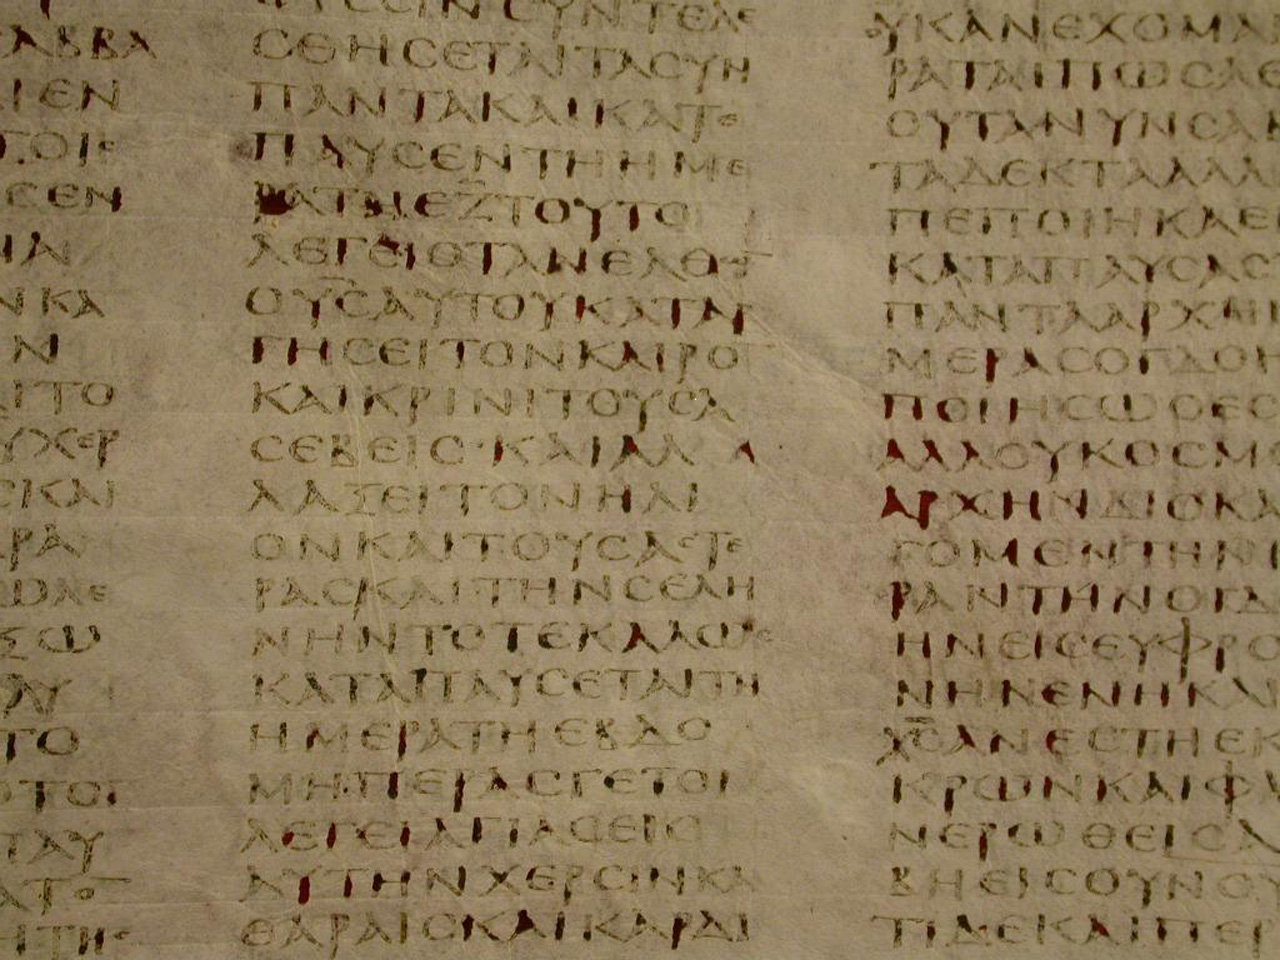 ΑΒΒΑ
ΙΕΝ
CΕΝ
ΙΑ
ΝΚΑ
Ν
ΙΤΟ
ΥΧΕΡ
CΙΚΑΙ
ΡΑ
ΣΩ
ΤΟ
ΤΑΥ
CΙΝCΥΝΤΕΛΕ
CΘΗCΕΤΑΙΤΑCΥΝ
ΠΑΝΤΑΚΑΙΚΑΤΕ
ΠΑΥCΕΝΤΗΗΜΕ
ΡΑΤΗΕΖΤΟΥΤΟ
ΛΕΓΕΙΟΤΑΝΕΛΘΩ
ΟΥ̅C̅ΑΥΤΟΥΚΑΤΑΡ
ΓΗCΕΙΤΟΝΚΑΙΡΟ
ΚΑΙΚΡΙΝΙΤΟΥCΑ
CΕΒΕΙC·ΚΑΙΑΛ
ΛΑΞΕΙΤΟΝΗΛΙ
ΟΝΚΑΙΤΟΥCΑCΤΕ
ΡΑCΚΑΙΤΗΝCΕΛΗ
ΝΗΝΤΟΤΕΚΑΛΩC
ΚΑΤΑΠΑΥCΕΤΑΙΤΗ
ΗΜΕΡΑΤΗΕΒΔΟ
ΜΗΠΕΡΑCΓΕΤΟΙ
ΛΕΓΕΙΑΓΙΑCΕΙC
ΑΥΤΗΝΧΕΡCΙΝΚΑ
ΘΑΡΑΙCΚΑΙΚΑΡΔΙ
ΥΚΑΝΕΧΟΜΑΙ
ΡΑΤΑΙΠΩCΛΕ
ΟΥΤΑΝΥΝCΑΒ
ΤΑΔΕΚΤΑΑΛΛΑ
ΠΕΠΟΙΗΚΑΕ
ΚΑΤΑΠΑΥCΑC
ΠΑΝΤΑΑΡΧΗΝ
ΜΕΡΑCΟΓΔΟΗ
ΠΟΙΗCΩΟΕC
ΑΛΛΟΥΚΟCΜΟ
ΑΡΧΗΝΔΙΟΚΑ
ΓΟΜΕΝΤΗΝΗ
ΡΑΝΤΗΝΟΓΔ
ΗΝΕΙCΕΥΦΡΟ
ΝΗΝΕΝΗΚΑΙ
Χ̅C̅ΑΝΕCΤΗΕΚ
ΚΡΩΝΚΑΙΦΑ
ΝΕΡΩΘΕΙCΑ
ΒΗΕΙCΟΥΝΟΥ
ΤΙΔΕΚΑΙΠΕΡ